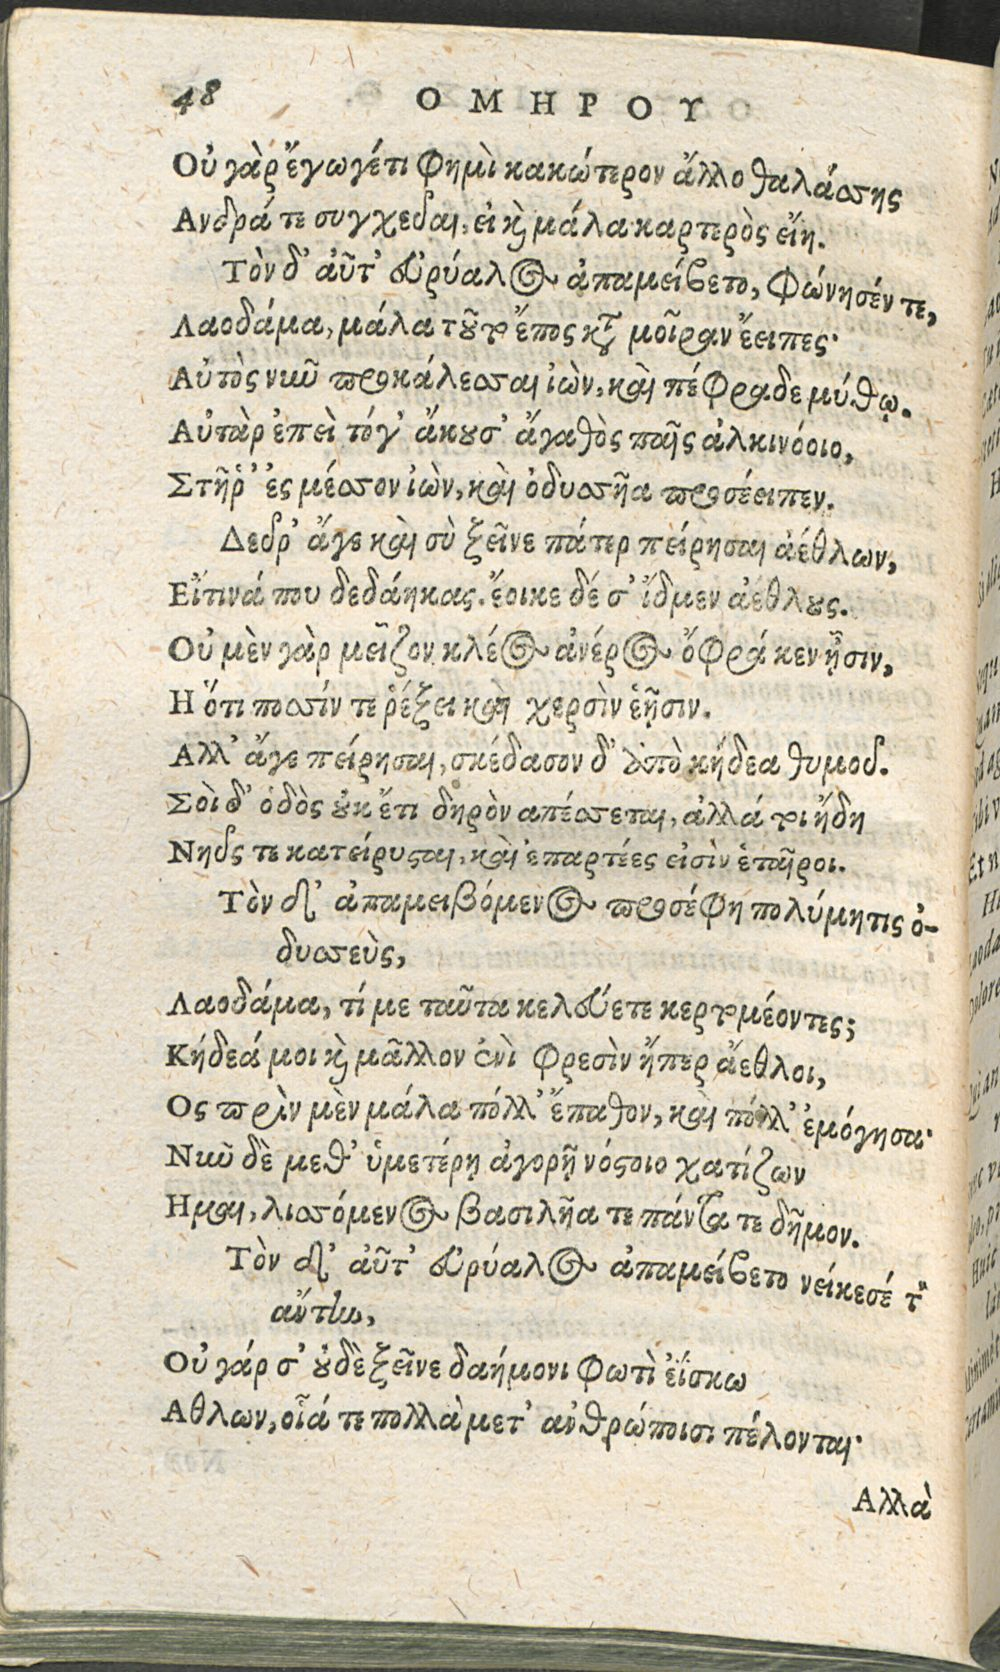 48 ΟΜΗΡΟΥ
Οὐ γὰρ ἔγωγέ τι φημὶ κακώτερον ἄλλο θαλάσσης
Ανδρά τε συγχεῦαι, εἰ καὶ μάλα καρτερὸς εἴη.
Τὸν δ' αὖτ' εὐρύαλος ἀπαμείβετο, φώνησέν τε,
Λαοδάμα, μάλα τοῦτο ἔπος κατὰ μοῖραν ἔειπες·
Αὐτὸς νῦν προκάλεσσαι ἰὼν, καὶ πέφραδε μύθῳ.
Αὐτὰρ ἐπεὶ τόγ' ἄκουσ' ἄγαθὸς παῆς ἀλκινόοιο,
Στῆ ῥ' ἐς μέσσον ἰὼν, καὶ ὀδυσσῆα προσέειπεν.
Δεῦρ' ἄγε καὶ σὺ ξεῖνε πάτερ πείρησαι ἀέθλων,
Εἴ τινά που δεδάηκας. ἔοικε δέ σ' ἴδμεν ἀέθλους.
Οὐ μὲν γὰρ μεῖζον κλέος ἀνέρος ὄφρά κεν ᾖσιν,
Η ὅτι ποσσίν τε ῥέξει καὶ χερσὶν ἑῇσιν.
Αλλ' ἄγε πείρησαι, σκέδασον δ' ἀπὸ κήδεα θυμοῦ.
Σοὶ δ' ὁδὸς οὐκ ἔτι δηρὸν απέσσεται, ἀλλά τοι ἤδη
Νηῦς τε κατείρυσται, καὶ ἐπαρτέες εἰσὶν ἑταῖροι.
Τὸν δ' ἀπαμειβόμενος προσέφη πολύμητις ὀ-
δυσσεὺς,
Λαοδάμα, τί με ταῦτα κελεύετε κερτομέοντες;
Κήδεά μοι καὶ μᾶλλον ἐνὶ φρεσὶν ἤπερ ἄεθλοι,
Ος πρὶν μὲν μάλα πόλλ' ἔπαθον, καὶ πόλλ' ἐμόγησα·
Νῦν δὲ μεθ' ὑμετέρῃ ἀγορῇ νόστοιο χατίζων
Ημαι, λισσόμενος βασιλῆα τε πάντα τε δῆμον.
Τὸν δ' αὖτ' εὐρύαλος ἀπαμείβετο νείκεσέ τ'
αὔτην,
Οὐ γάρ σ' οὐδὲ ξεῖνε δαήμονι φωτὶ ἐΐσκω
Αθλων, οἷά τε πολλὰ μετ' ἀνθρώποισι πέλονται·
Αλλὰ